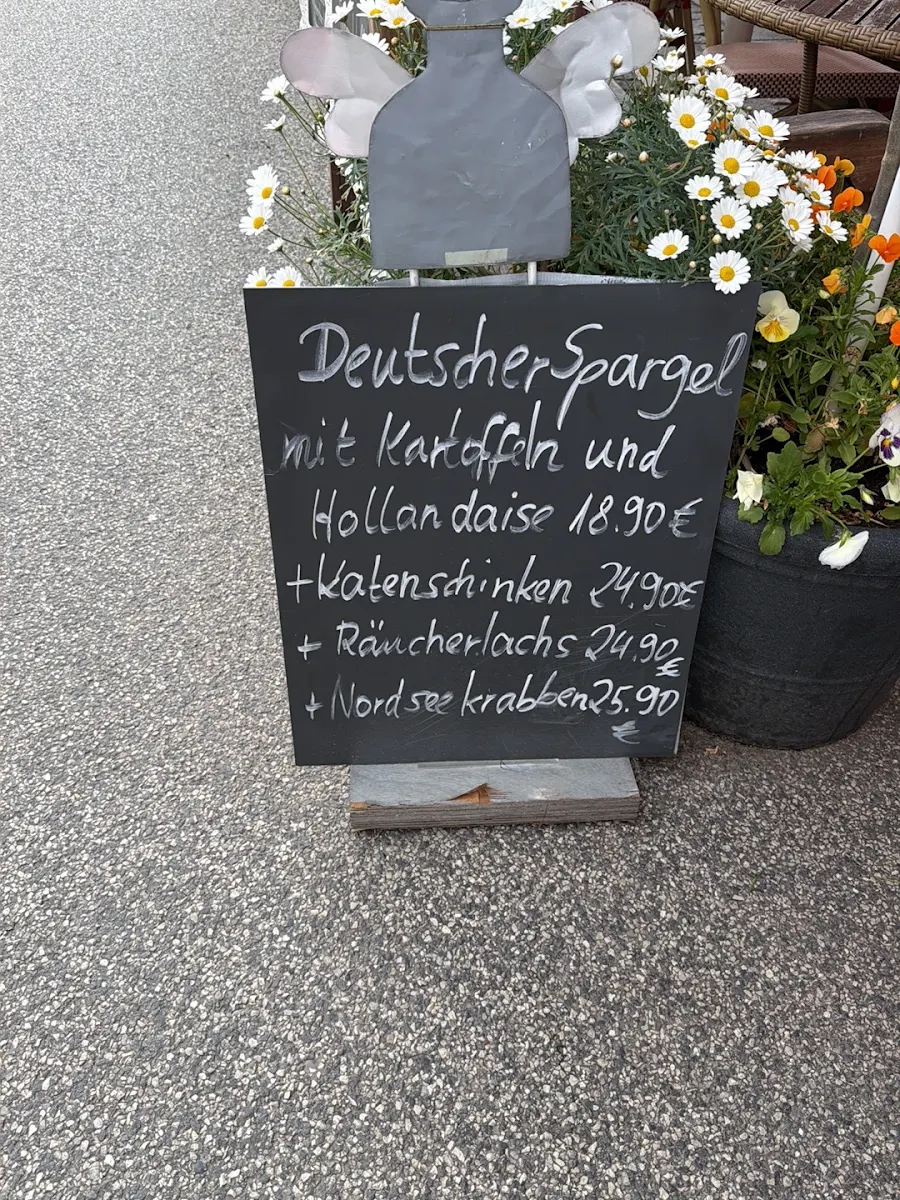 Deutscher Spargel
mit Kartoffeln und
Hollandaise 18.90 €
+ Katenschinken 24.90 €
+ Räucherlachs 24.90 €
+ Nordseekrabben 25.90
€